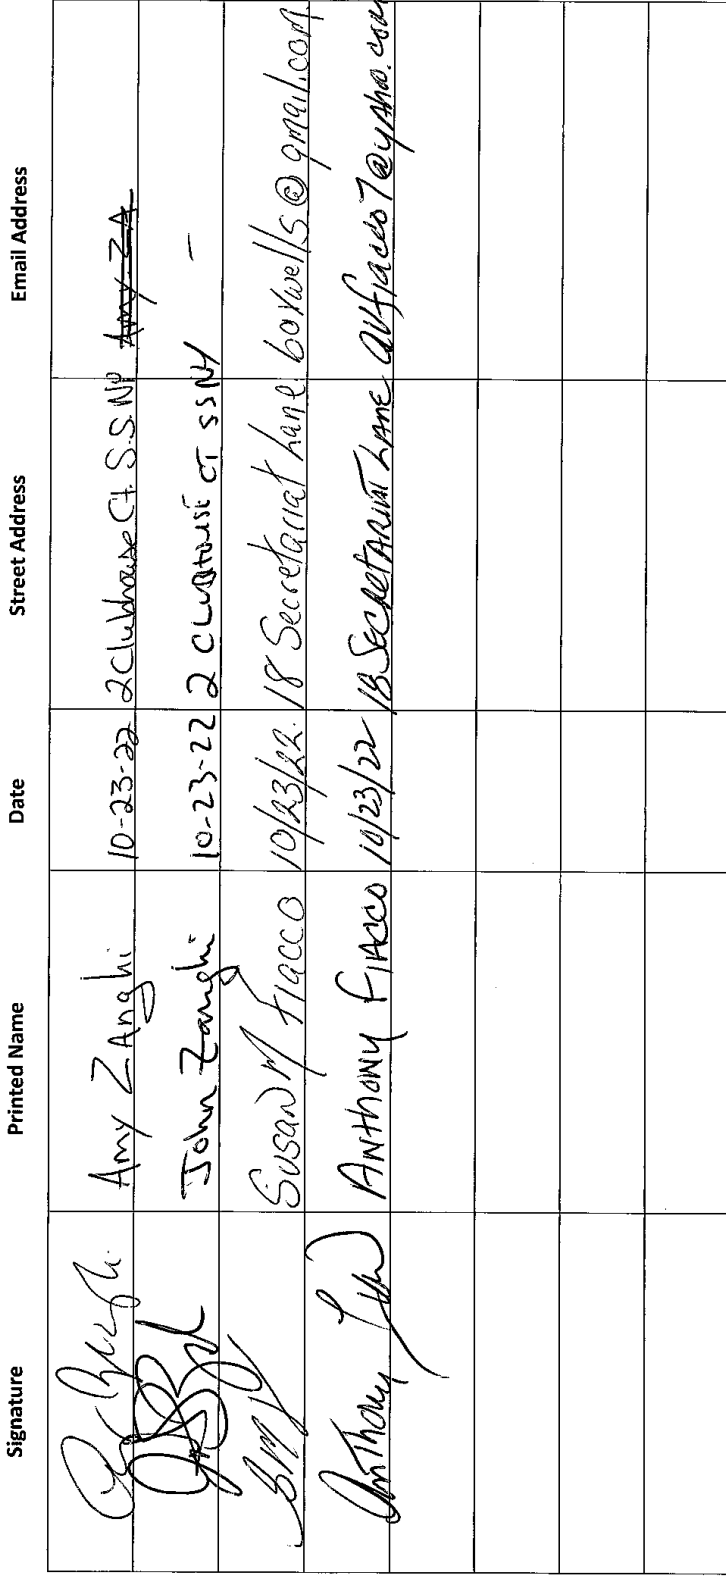 Signature Printed Name Date Street Address Email Address
Amy ZAnghi 10-23-22 2 Clubhouse Ct. S.S. NY Amy.ZA
John Zanghi 10-23-22 2 CLUBHOUSE CT SS NY –
Susan M Fiacco 10/23/22 18 Secretariat Lane boxwells@gmail.com
Anthony Fiacco 10/23/22 18 SECRETARIAT LANE